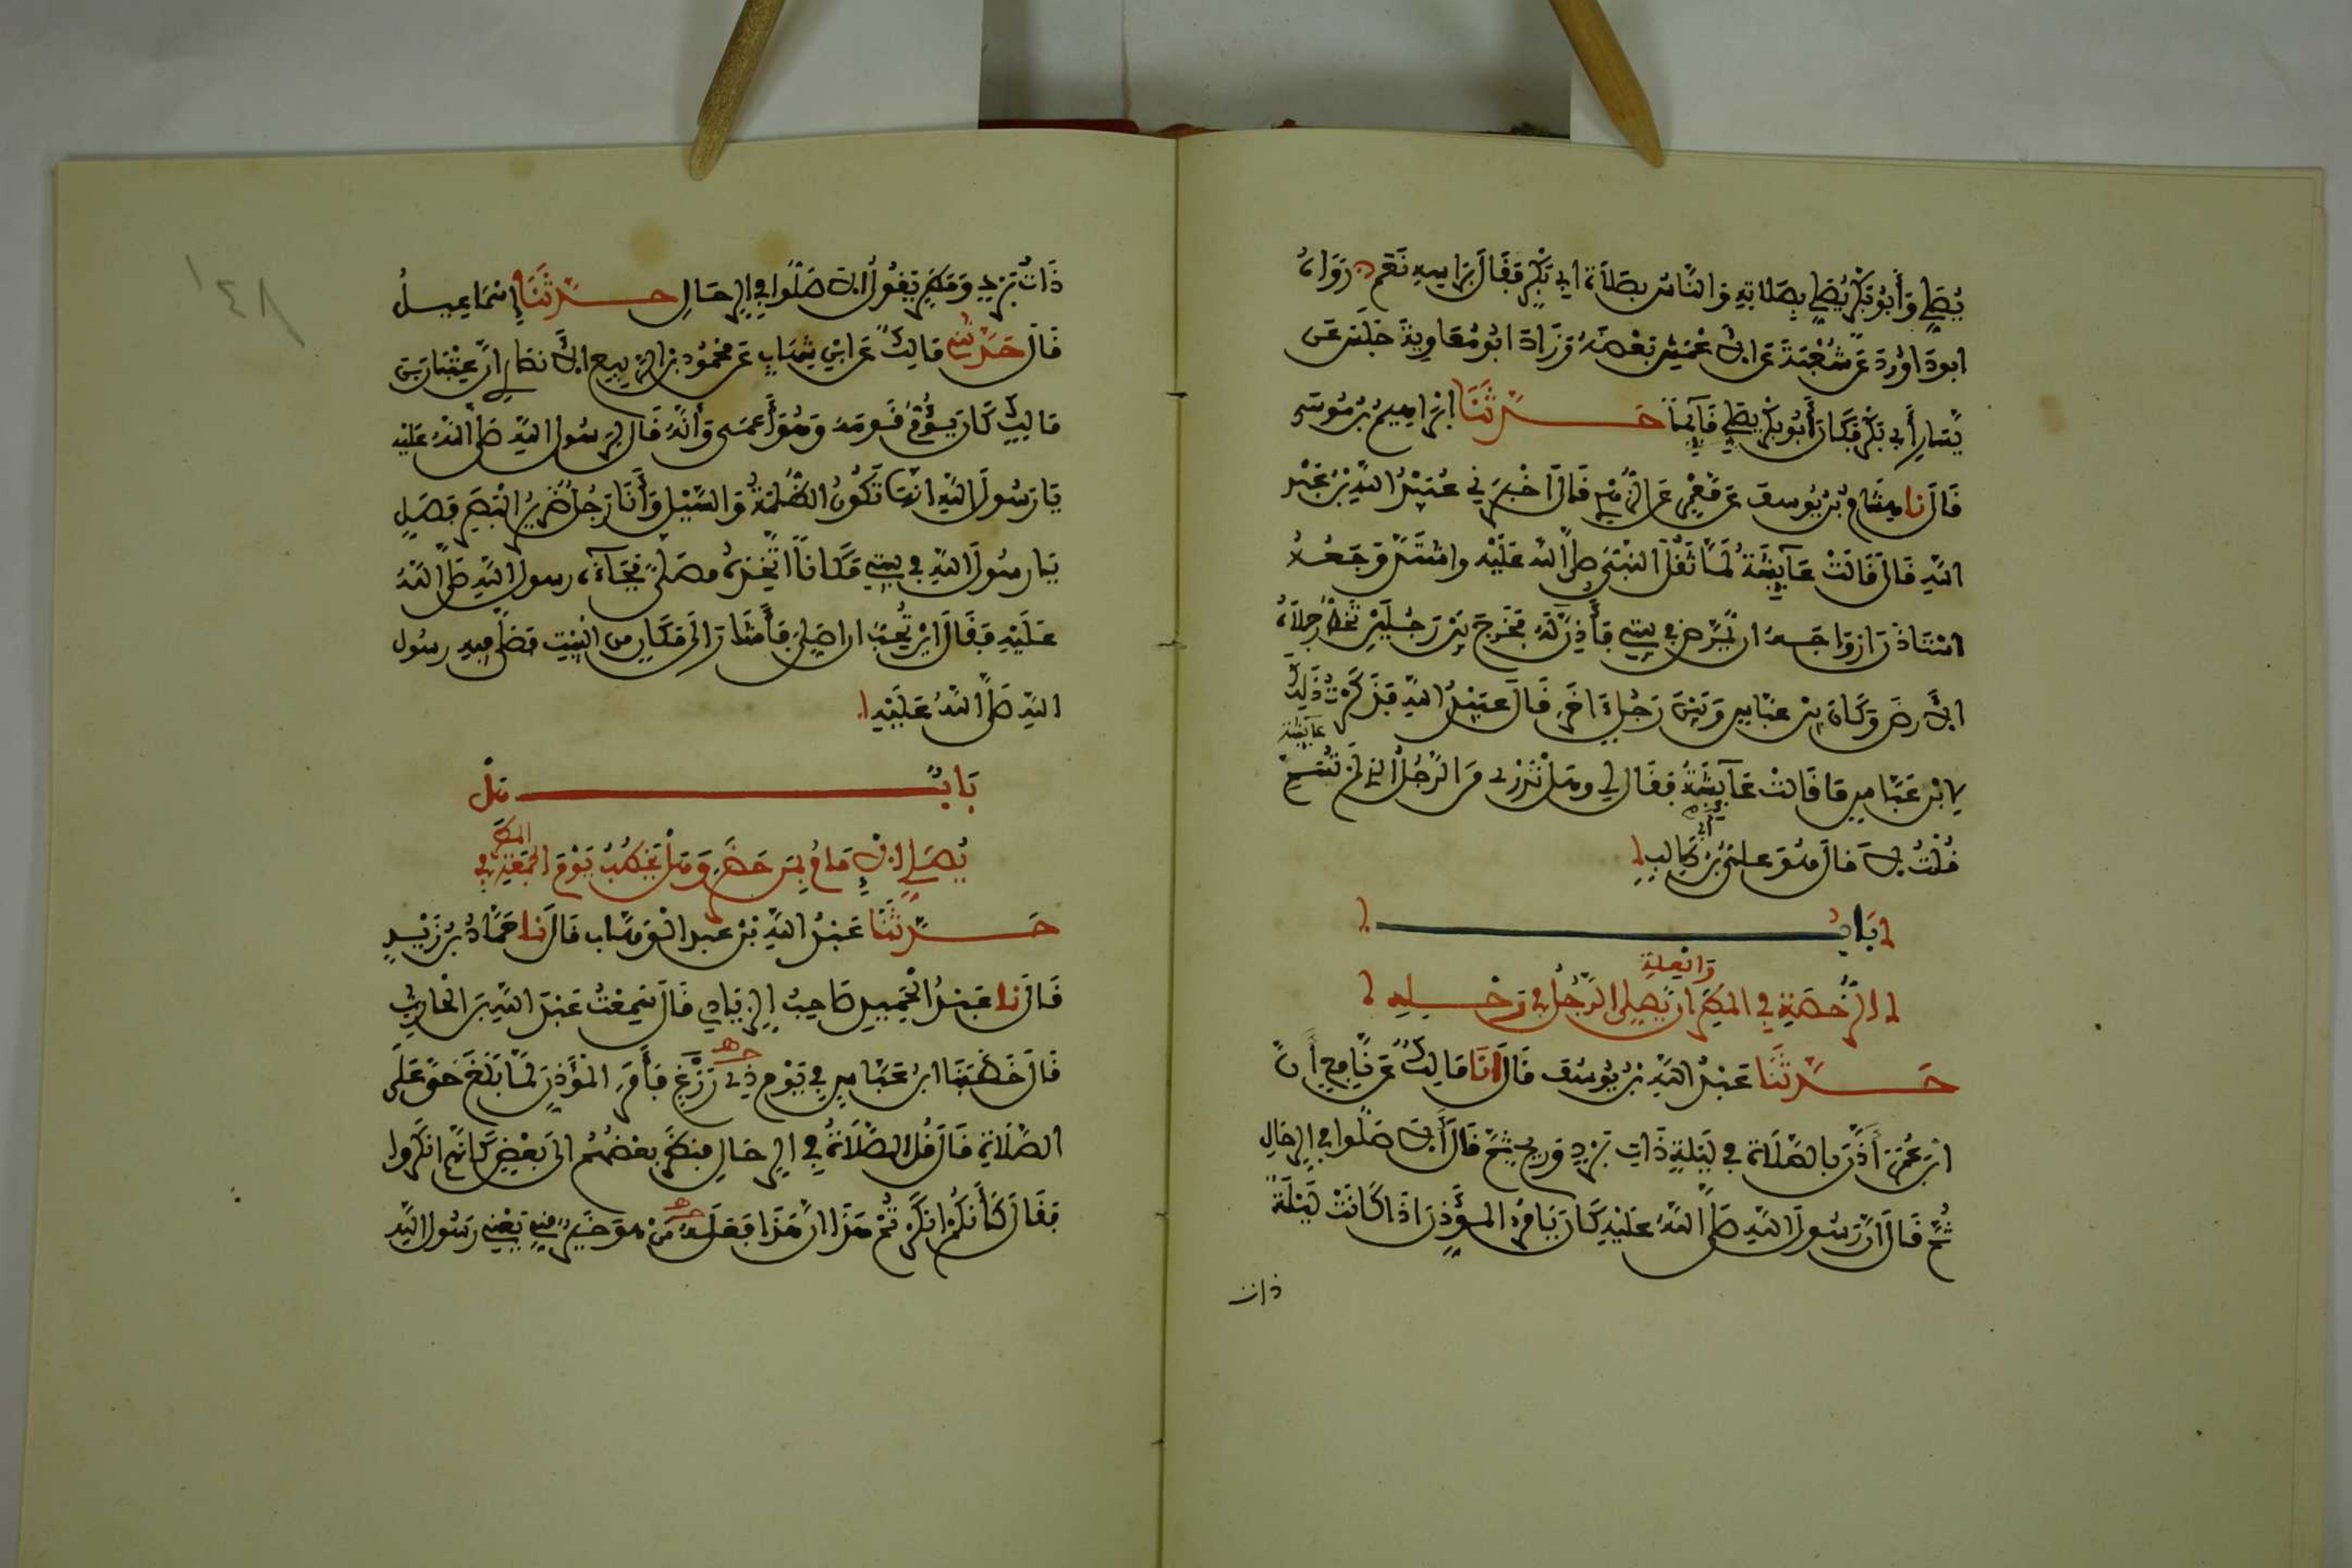 يُصَلِّي وَأَبُو بَكْرٍ يُصَلِّي بِصَلَاتِهِ وَالنَّاسُ بِصَلَاةِ ابي بَكْرٍ فَقَالَ بِرَاسِهِ نَعَم رَوَاهُ
ابو دَاوُردَ عَن شُعْبَةَ عَن الاعْمَشِ بَعْضَهُ وَزَادَ ابُو مُعَاوِيَةَ جَلَسَ عَن
يَّسَارِ أَبِي بَكْرٍ فَكَانَ أَبُو بَكْرٍ يُصَلِّي قَآيِمًا حَدَّثَنَا ابْرَاهِيمُ بْنُ مُوسَى
قَالَ نا هِشَامُ بْنُ يُوسفَ عَن مَعْمَرٍ عَنِ الزُّهْرِيِّ قَالَ اخْبَرَنِي عُبَيْدُ اللهِ بْنُ عَبْدِ
اللهِ قَالَ قَالَتْ عَآيِشَةُ لَمَّا ثَقُلَ النَّبِيُّ صَلَّى اللهُ عَلَيْهِ واشْتَدَّ وَجَعُهُ
اسْتَاذَنَ ازوَاجَهُ ان يُّمَرَّضَ فِي بيتِي فَأَذِنَّ لَهُ فَخَرَجَ بَيْنَ رَجُلَيْنِ تَخُطُّ رِجْلَاهُ
الارضَ وَكَانَ بين عبَّاسٍ وَبَيْنَ رَجُلٍ اخَرَ قَالَ عبَيْدُ اللهِ فَذَكَرْتُ ذَلِكَ
عآيشة
لِابْنِ عَبَّاسٍ مَا قَالَتْ عَآيِشَةُ فَقَالَ لِي وهَلْ تَدْرِي مَنِ الرَّجُلُ الذِي لَمْ تُسَمِّ
قُلْتُ لا قَالَ هُوَ عَلِيُّ بْنُ أَبِي طَالِبٍ
بَابُ
الرُّخْصَةِ فِي المَطَرِ وَالْعِلَّةِ ان يُّصَلِّيَ الرَّجُلُ فِي رَحْلِهِ
حَدَّثَنَا عَبْدُ اللهِ بْنُ يُوسُفَ قَالَ انَا مَالِكٌ عَن نَّافِعٍ أَنَّ
ابْنَ عُمَرَ أَذَّنَ بِالصَّلَاةِ فِي لَيْلَةٍ ذَاتِ بَرْدٍ وَرِيحٍ ثُمَّ قَالَ أَلا صَلُّوا فِي الرِّحَالِ
ثُمَّ قَالَ انَّ رَسُولَ اللهِ صَلَّى اللهُ عَلَيْهِ كَانَ يَامُرُ المُؤَذِّنَ اذَا كَانَتْ لَيْلَةٌ
ذات
١٤٨
ذَاتُ بَرْدٍ وَمَطَرٍ يَقُولُ الا صَلُّوا فِي الرِّحَالِ حَدَّثَنَا إِسْمَاعِيلُ
قَالَ حَدَّثَنِي مَالِكٌ عَنِ ابْنِ شِهَابٍ عَن مَّحْمُودِ بْنِ الرَّبِيعِ الانصَارِيِّ أَنَّ عِتْبَانَ بْنَ
مَالِكٍ كَانَ يَؤُمُّ قَومَهُ وَهُوَ أَعمَى وَأَنَّهُ قَالَ لِرَسُولِ اللهِ صَلَّى اللهُ عَلَيْهِ
يَا رَسُولَ اللهِ انهَا تَكُونُ الظُّلْمَةُ وَالسَّيْلُ وَأَنَا رَجُلٌ ضَرِيرُ الْبَصَرِ فَصَلِّ
يَا رسُولَ اللهِ فِي بيتِي مَكَانًا اتَّخِذهُ مصَلًّى فَجَآءَهُ رسولُ اللهِ صَلَّى اللهُ
عَلَيْهِ فَقَالَ ايْنَ تُحِبُّ ان اصَلِّيَ فَأَشَارَ الَى مَكَانٍ مِنَ الْبَيْتِ فَصَلَّى فِيهِ رسُولُ
اللهِ صَلَّى اللهُ عَلَيْهِ
بَابٌ هَلْ
يُصَلِّي الامَامُ بِمَن حَضَرَ وَهَلْ يَخْطُبُ يَوْمَ الجُمُعَةِ فِي المَطَرِ
حَدَّثَنَا عَبْدُ اللهِ بْنُ عَبدِ الْوَهَّابِ قَالَ نا حَمَّادُ بْنُ زَيْدٍ
قَالَ نا عَبْدُ الْحَمِيدِ صَاحِبُ الزِّيَادِي قَالَ سَمِعْتُ عَبْدَ اللهِ بنَ الْحَارِثِ
قَالَ خَطَبَنَا ابْنُ عَبَّاسٍ فِي يَوْمٍ ذِي رَزْغٍ فَأَمَرَ الْمُؤَذِّنَ لَمَّا بَلَغَ حَيَّ عَلَى
الصَّلَاةِ قَالَ قُلِ الصَّلَاةُ فِي الرِّحَالِ فَنَظَرَ بَعْضُهُمُ الَى بَعْضٍ كَأَنَّهُمُ انكَرُوا
فَقَالَ كَأَنَّكُمُ انكَرْتُمْ هَذَا انَّ هَذَا فَعَلَهُ مَنْ هُوَ خَيْرٌ مِنِّي يَعْنِي رَسُولَ اللهِ